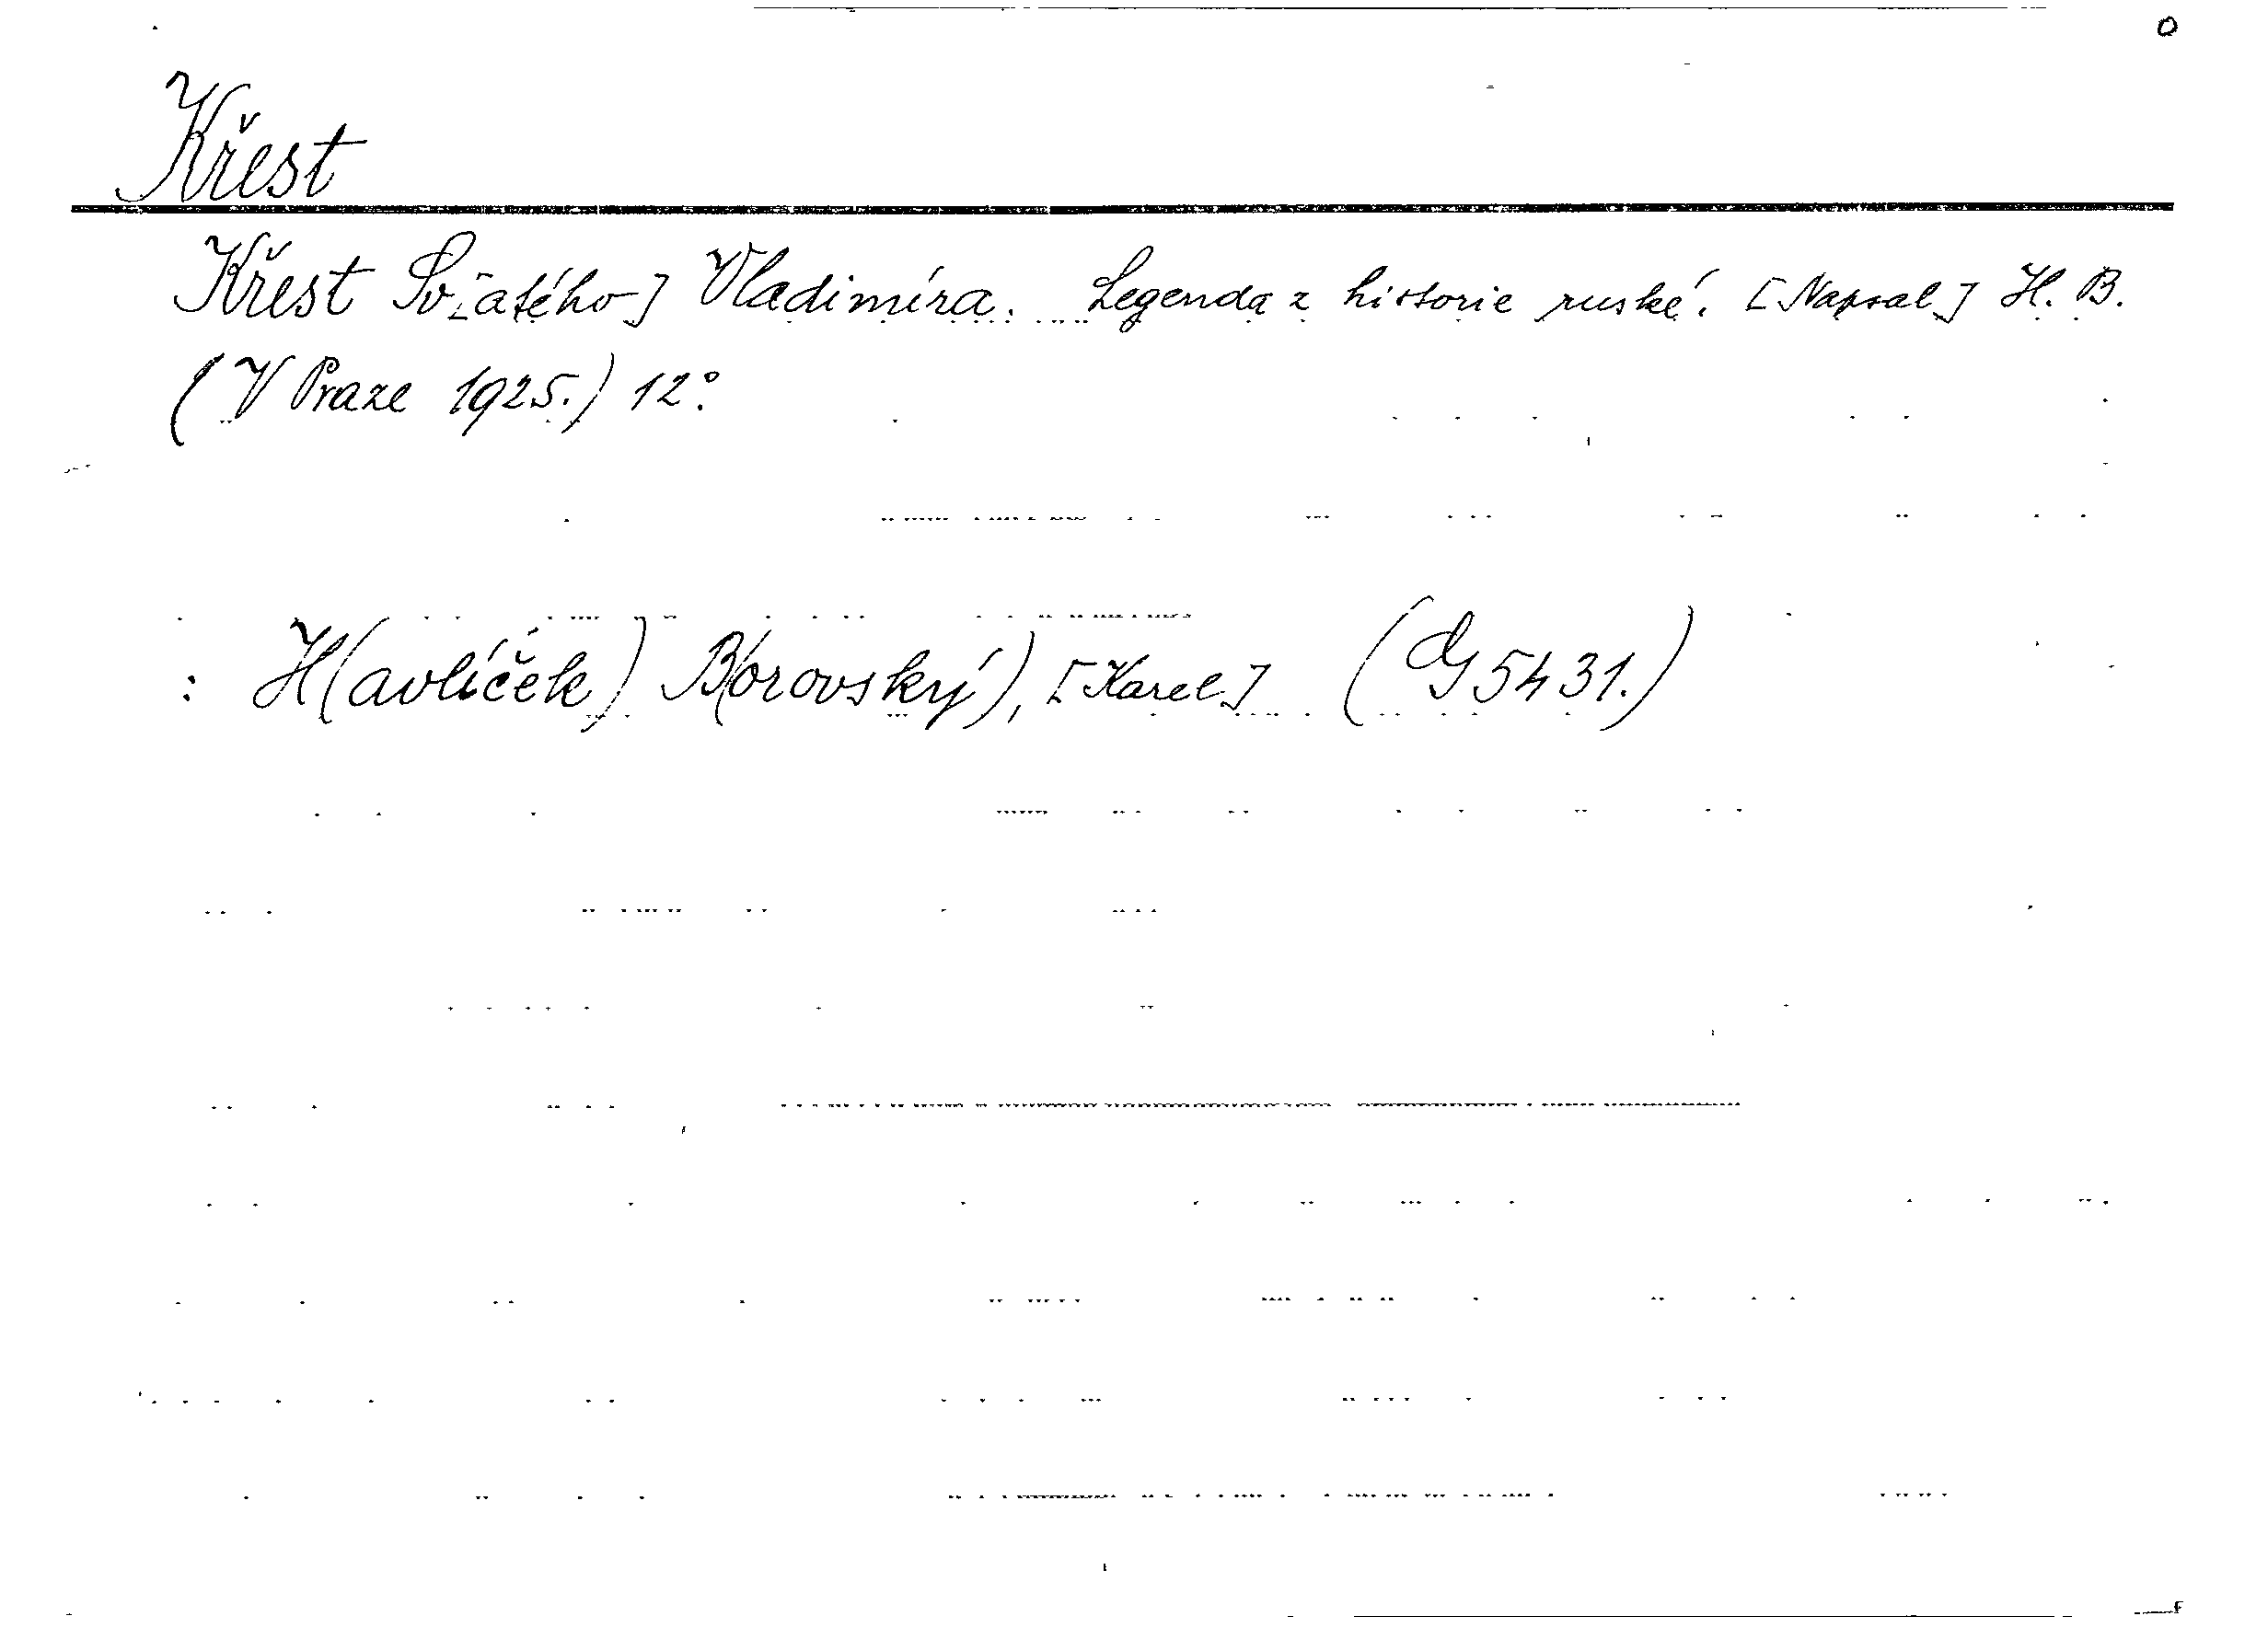 o
Křest
Křest Sv[atého] Vladimíra. Legenda z historie ruské. [Napsal] H. B.
(V Praze 1925.) 12°.
: H(avlíček) B(orovský), [Karel] (dg 5431.)